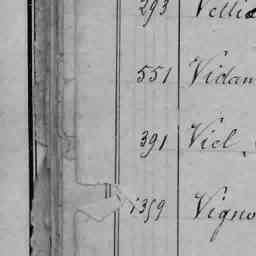 293
551 Vidam
391 Viel
1359 Vigno